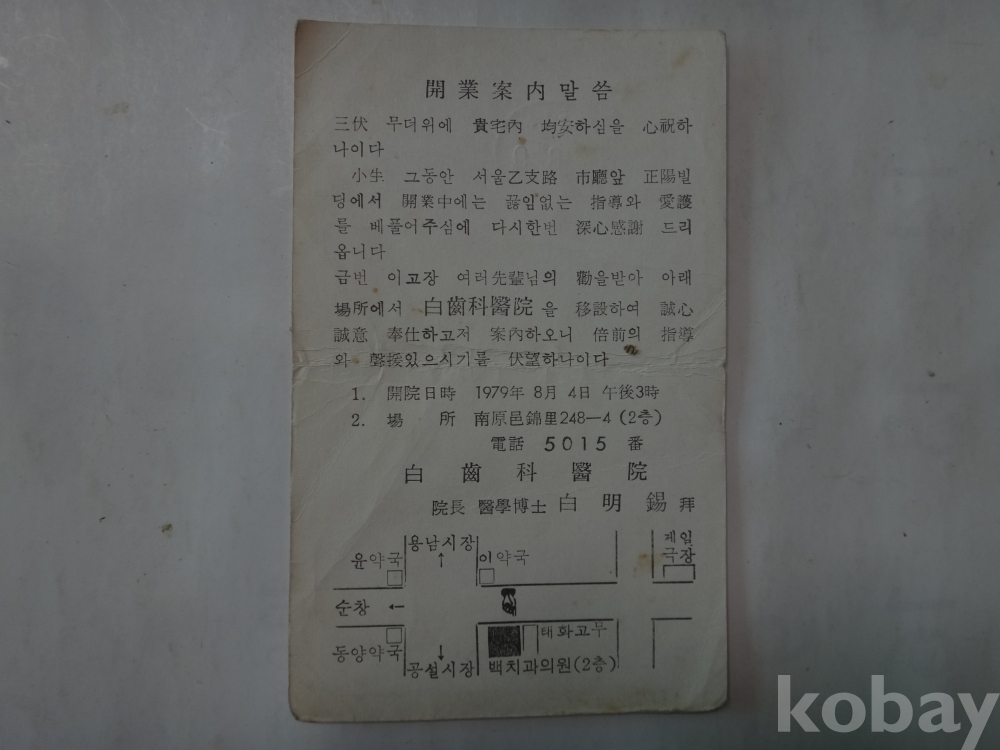 開業案內말씀
三伏 무더위에 貴宅內 均安하심을 心祝하
나이다
小生 그동안 서울乙支路 市廳앞 正陽빌
딩에서 開業中에는 끓임없는 指導와 愛護
를 베풀어주심에 다시한번 深心感謝 드리
옵니다
금번 이고장 여러先輩님의 勸을받아 아래
場所에서 白齒科醫院을 移設하여 誠心
誠意 奉仕하고저 案內하오니 倍前의 指導
와 聲援있으시기를 伏望하나이다
1. 開院日時 1979年 8月 4日 午後3時
2. 場 所 南原邑錦里248—4 (2층)
電話 5015 番
白齒科醫院
院長 醫學博士 白明錫 拜
용남시장
↑
윤약국
이약국
제일
극장
순창 ←
태화고무
동양약국
↓
공설시장
백치과의원(2층)
kobay